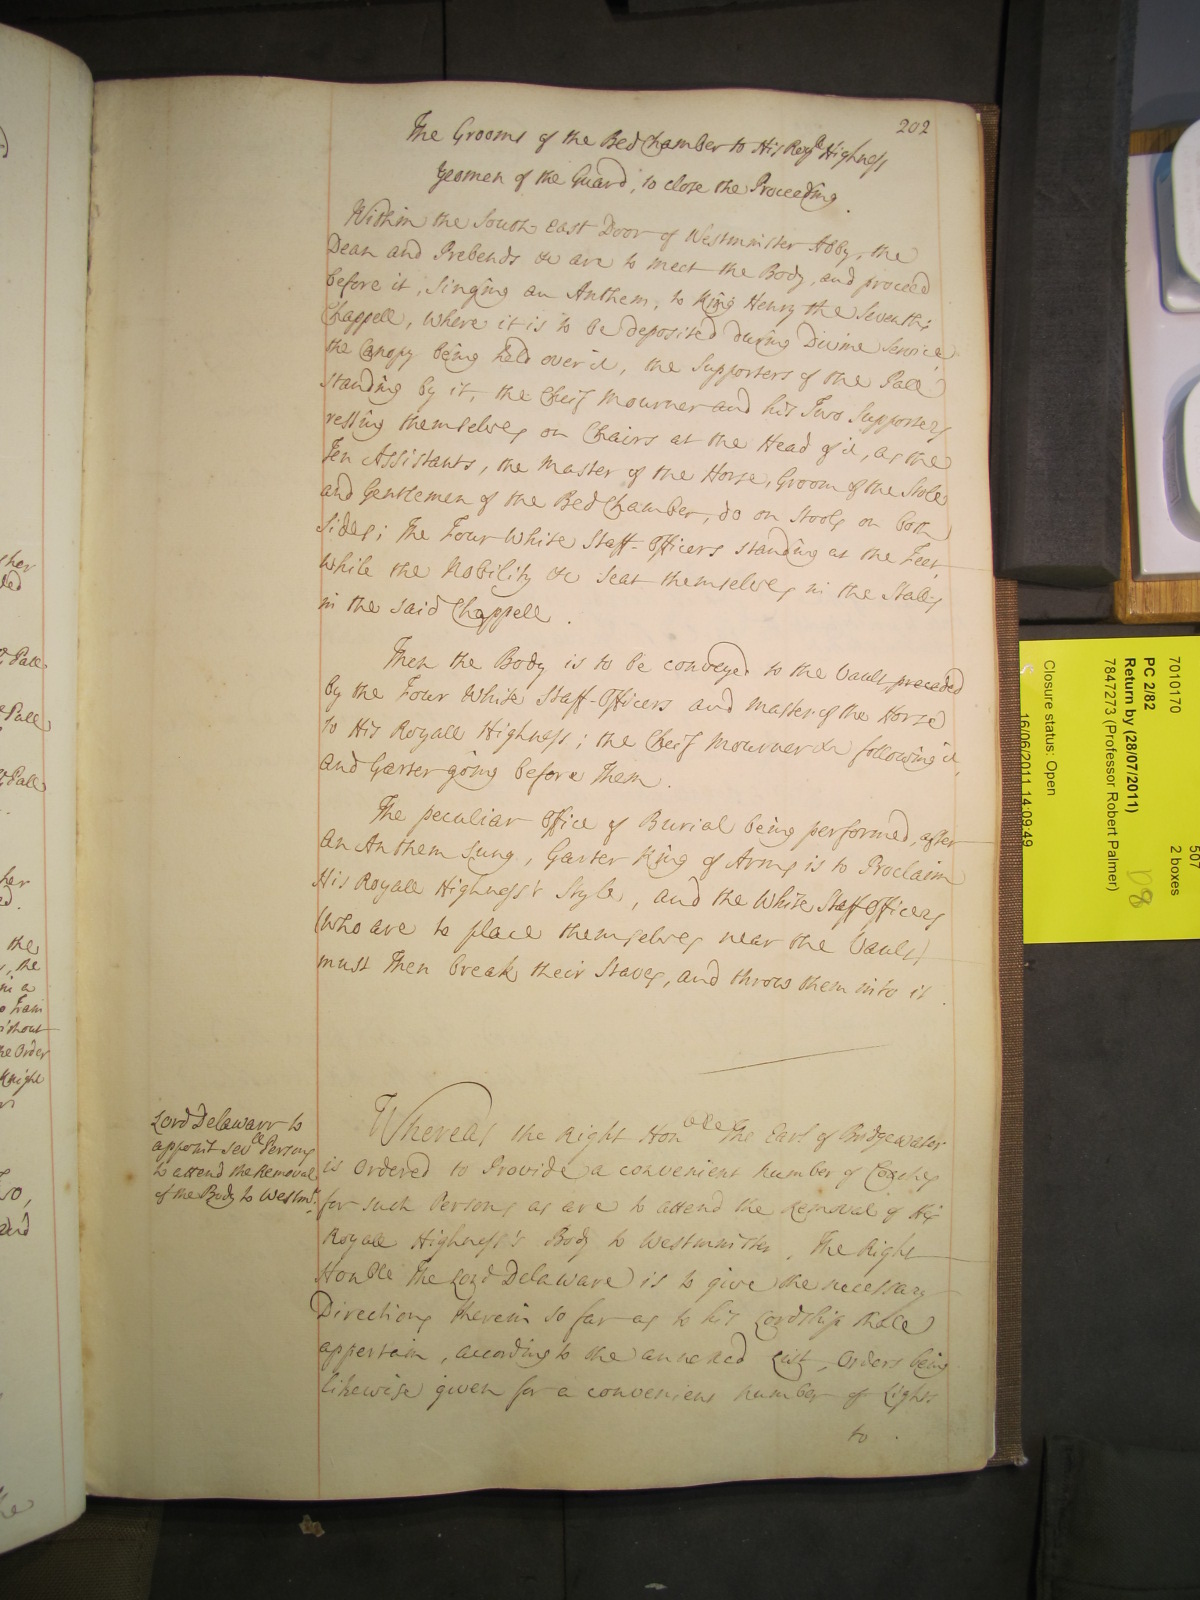 202
The Grooms of the Bed Chamber to His Royll Highness
Yeomen of the Guard, to close the Proceeding.
Within the South East Door of Westminster Abby, the
Dean and Prebends &c are to meet the Body, and proceed
before it, Singing an Anthem, to King Henry the Seventh's
Chappell, where it is to be deposited during Divine Service
the Canopy being held over it, the Supporters of the Pall
standing by it, the Cheif Mourner and his Two Supporters
resting themselves on Chairs at the Head of it, as the
Ten Assistants, the Master of the Horse, Groom of the Stole
and Gentlemen of the Bed Chamber, do on Stools on both
Sides; The Four White Staff-Officers standing at the Feet,
while the Nobility &c seat themselves in the Stalls
in the said Chappell.
Then the Body is to be conveyed to the Vault preceded
by the Four White Staff-Officers and Master of the Horse
to His Royall Highness; the Cheif Mourner &c following it,
and Garter going before Them.
The peculiar Office of Burial being performed, after
an Anthem Sung, Garter King of Arms is to Proclaim
His Royall Highness's Style, and the White Staff Officers
(who are to place themselves near the Vault)
must then break their Staves, and throw them into it.
Lord Delawarr to
appoint sevll Persons
to attend the Removal
of the Body to Westmr.
Whereas the Right Honoble the Earl of Bridgewater
is Ordered to Provide a convenient number of Coaches
for such Persons as are to attend the Removal of His
Royall Highness's Body to Westminster, The Right
Honble The Lord Delaware is to give the necessary
Directions therein so far as to his Lordship shall
appertain, according to the annexed List, Orders being
likewise given for a convenient number of Lights
to
sher
Pall
Pall
Pall
her
the
the
in a
Train
without
the Order
Knight
and
7010170
PC 2/82
Return by (28/07/2011)
7847273 (Professor Robert Palmer)
Closure status: Open
16/06/2011 14:09:49
507
2 boxes
D8